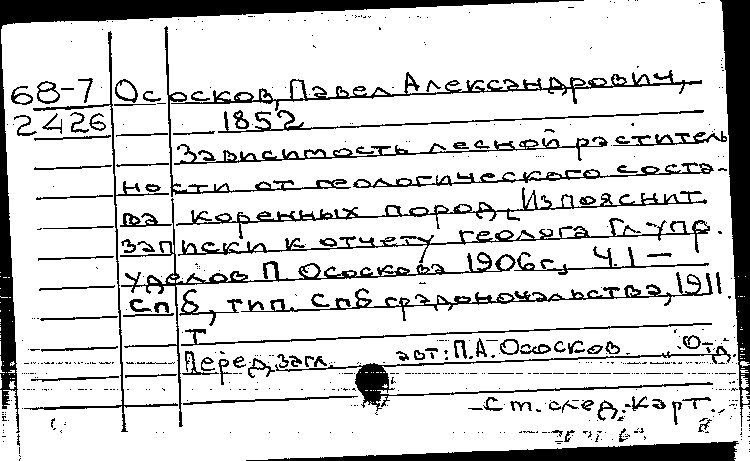 68-7 Ососков, Павел Александрович,
2426 1852
Зависимость лесной раститель
ности от геологического соста-
ва коренных пород. Из пояснит.
записки к отчету геолога Гл. упр.
уделов П Ососкова 1906 г., Ч. 1 —
Спб, тип. Спб градоначальства, 1911.
т
Перед. загл. авт: П.А. Ососков. "Отд.
См. след. карт.